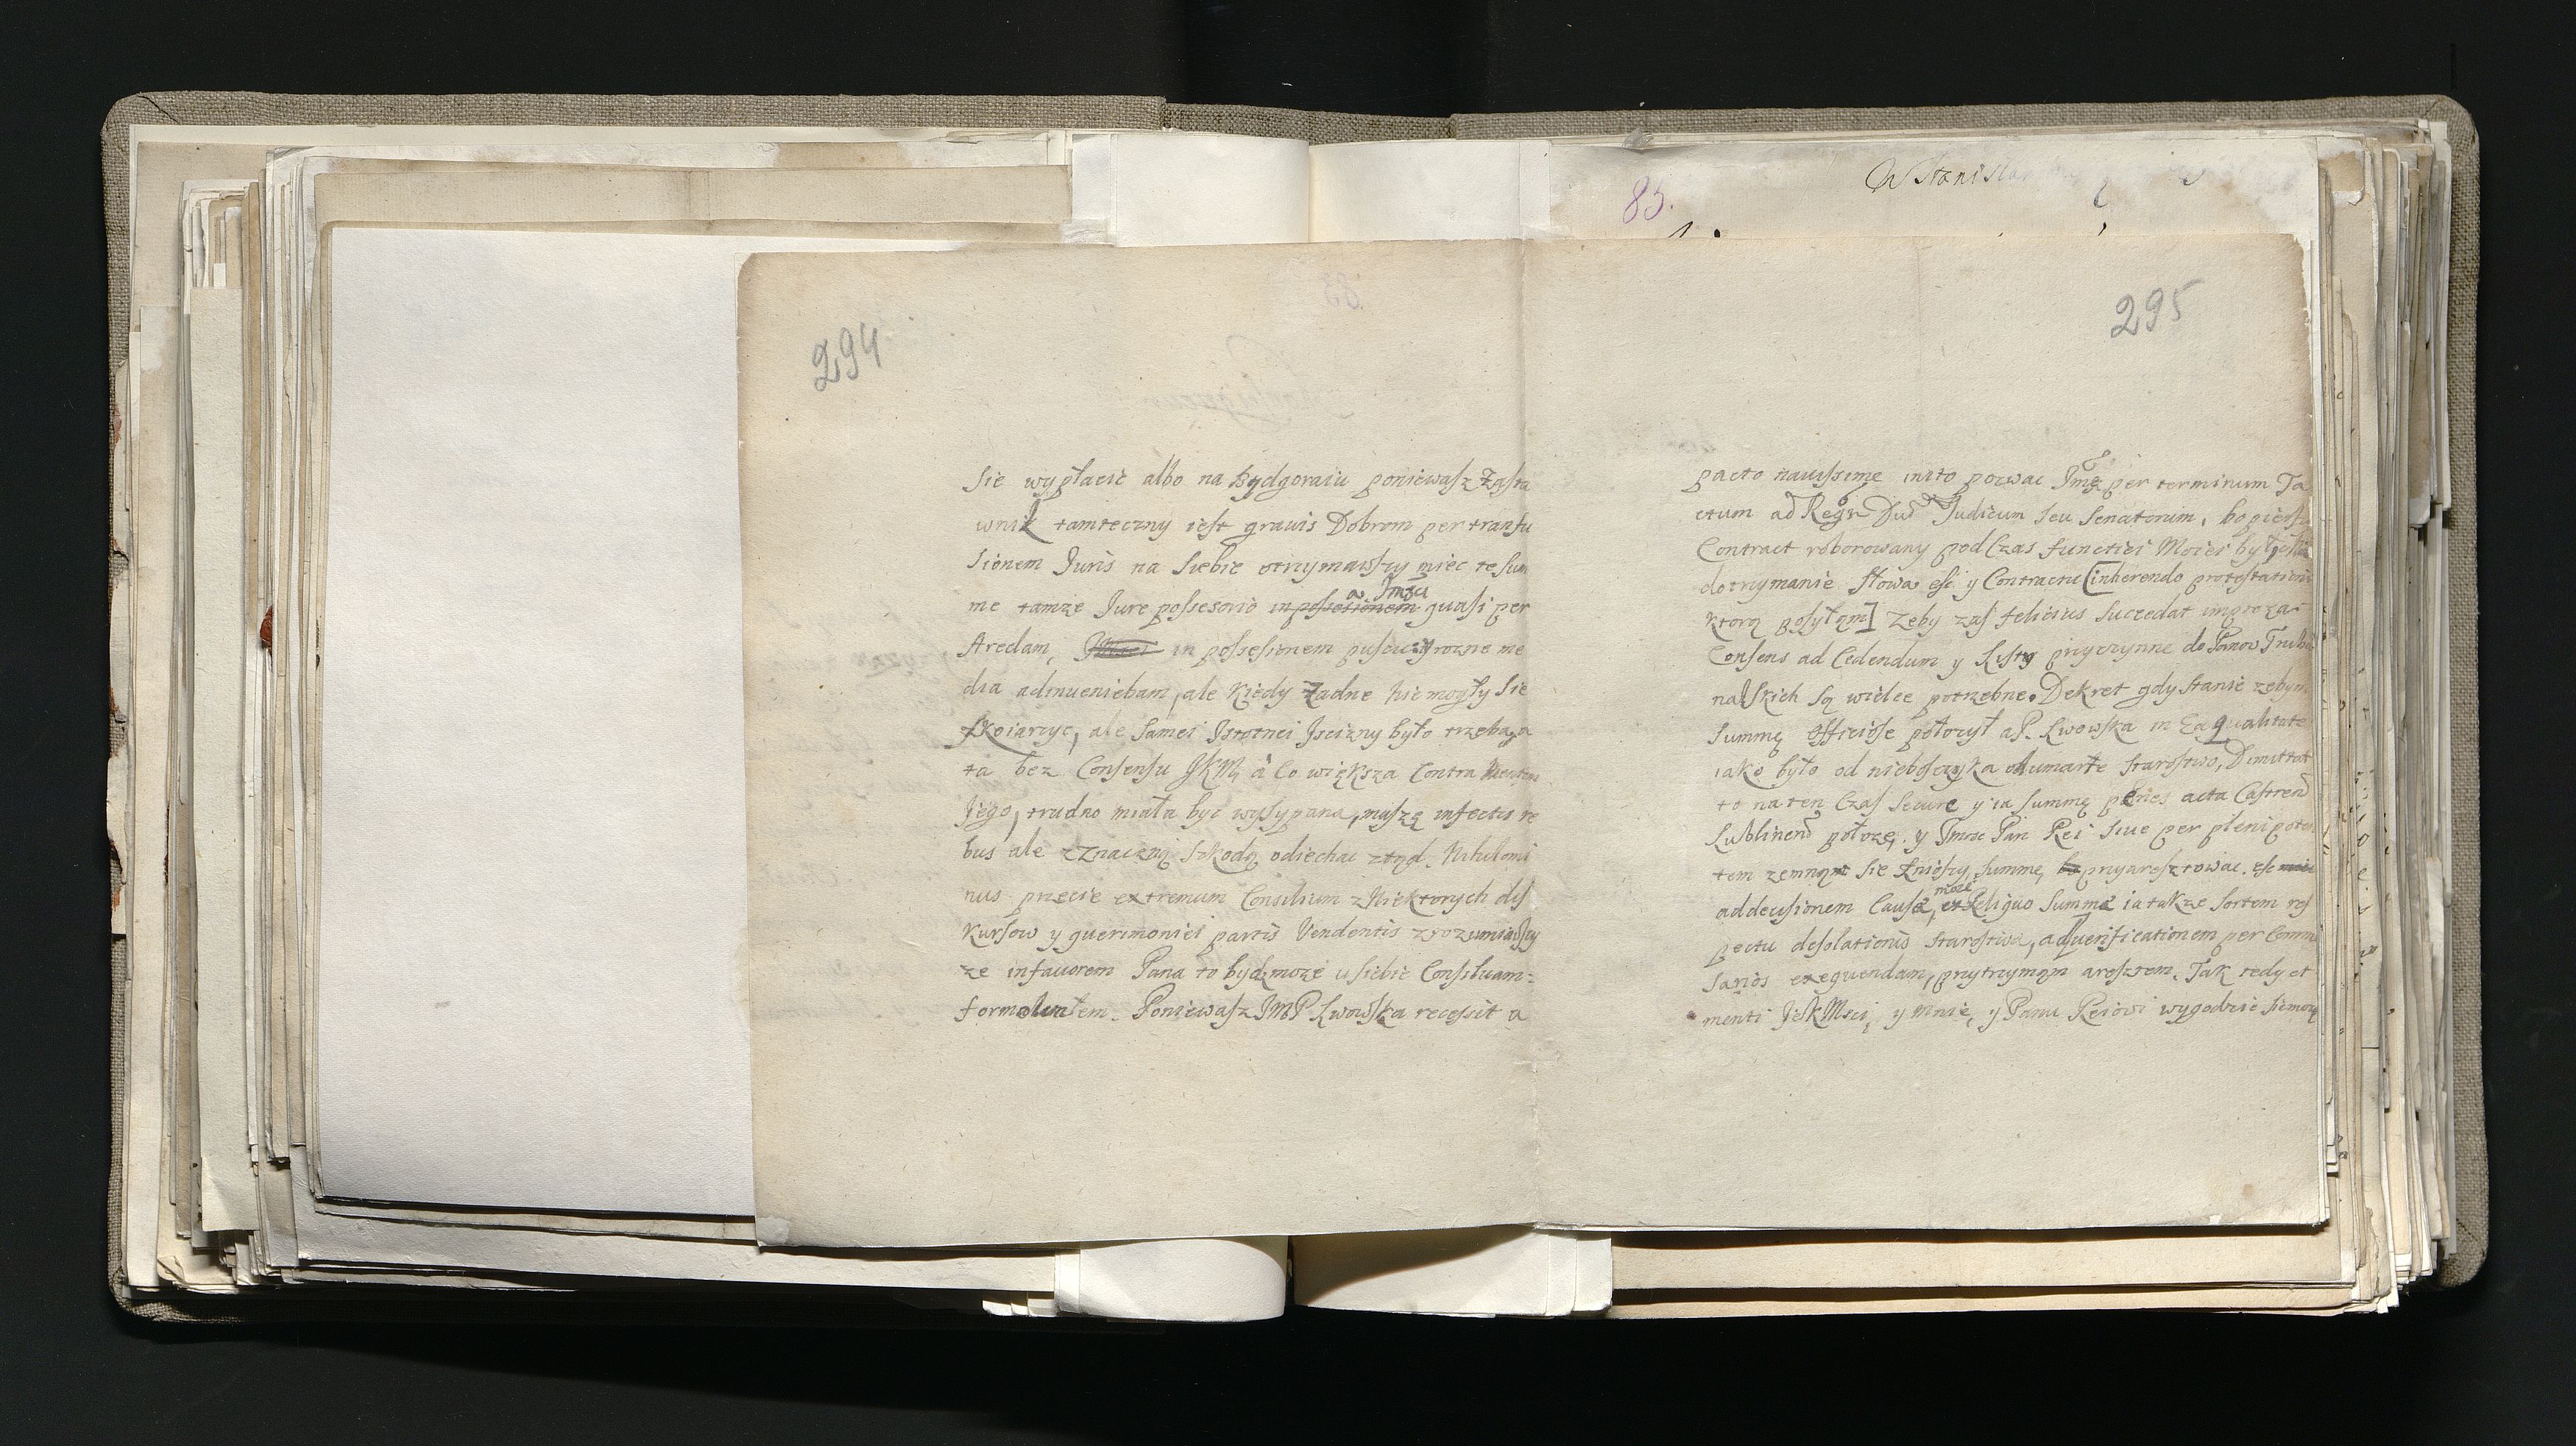 W Stanisla
83.
294
Sie wypłacić albo na Bydgoraiu ponieważ Zasta
wnik tamteczny iest gravis Dobrom per transfu
sionem Juris na Siebie otrzymawszy miec te sum
me tamze Jure possesorio in possesionem quasi per
a Jmsci
Aredam, in possesionem puscic y rozne me
dia adinueniebam, ale kiedy żadne nie mogły sie
skoiarzyc, ale samei Istotnei Iscizny było trzeba, a
ta bez Consensu JKMci a co większa Contra Mentem
Jego, trudno miała być wysypana, muszę infectis re
bus ale z znaczną szkodą odiechac ztąd. Nihilomi
nus przecie extremum Consilium z Niektorych dis
kursow y querimoniei partis Vendentis zrozumiawszy
ze in fauorem Pana to bydz moze u siebie Consilium
formolem. Ponieważ JMP Lwowska recessit a
295
pacto nouissime inito pozwac Jmę per terminum Ta
ctum ad Regn Judicum seu Senatorum, bo pierszy
Contract roborowany pod Czas functiei Moiei był
dotrzymanie słowa y Contractu [inherendo protestationi
ktorą posyłam] Zeby zas felicius succedat impreza
Consens ad Cedendum y Listy przyczynne do Panow Tribu
nalskich są wielce potrzebne. Dekret gdy stanie zebym
summę Officiose położył a P. Lwowska in Ea qualitate
iako było od nieboszczyka odumarłe starostwo, Dimittat
to na ten Czas secure y ia summę penes acta Castren
Lublinen położę, y Jmsc Pan Rei siue per plenipoten
tem zemną sie zniozszy summę przyaresztowac
ad decisionem Causæ, et Reliquo summæ ia takze sortem res
moze
pectu desolationis starostwa, ad uerificationem per Commi
sarios exequendam, przytrzymam aresztem. Tak tedy et
menti JeKMsci, y mnie, y Panu Reiowi wygodzic sie moze